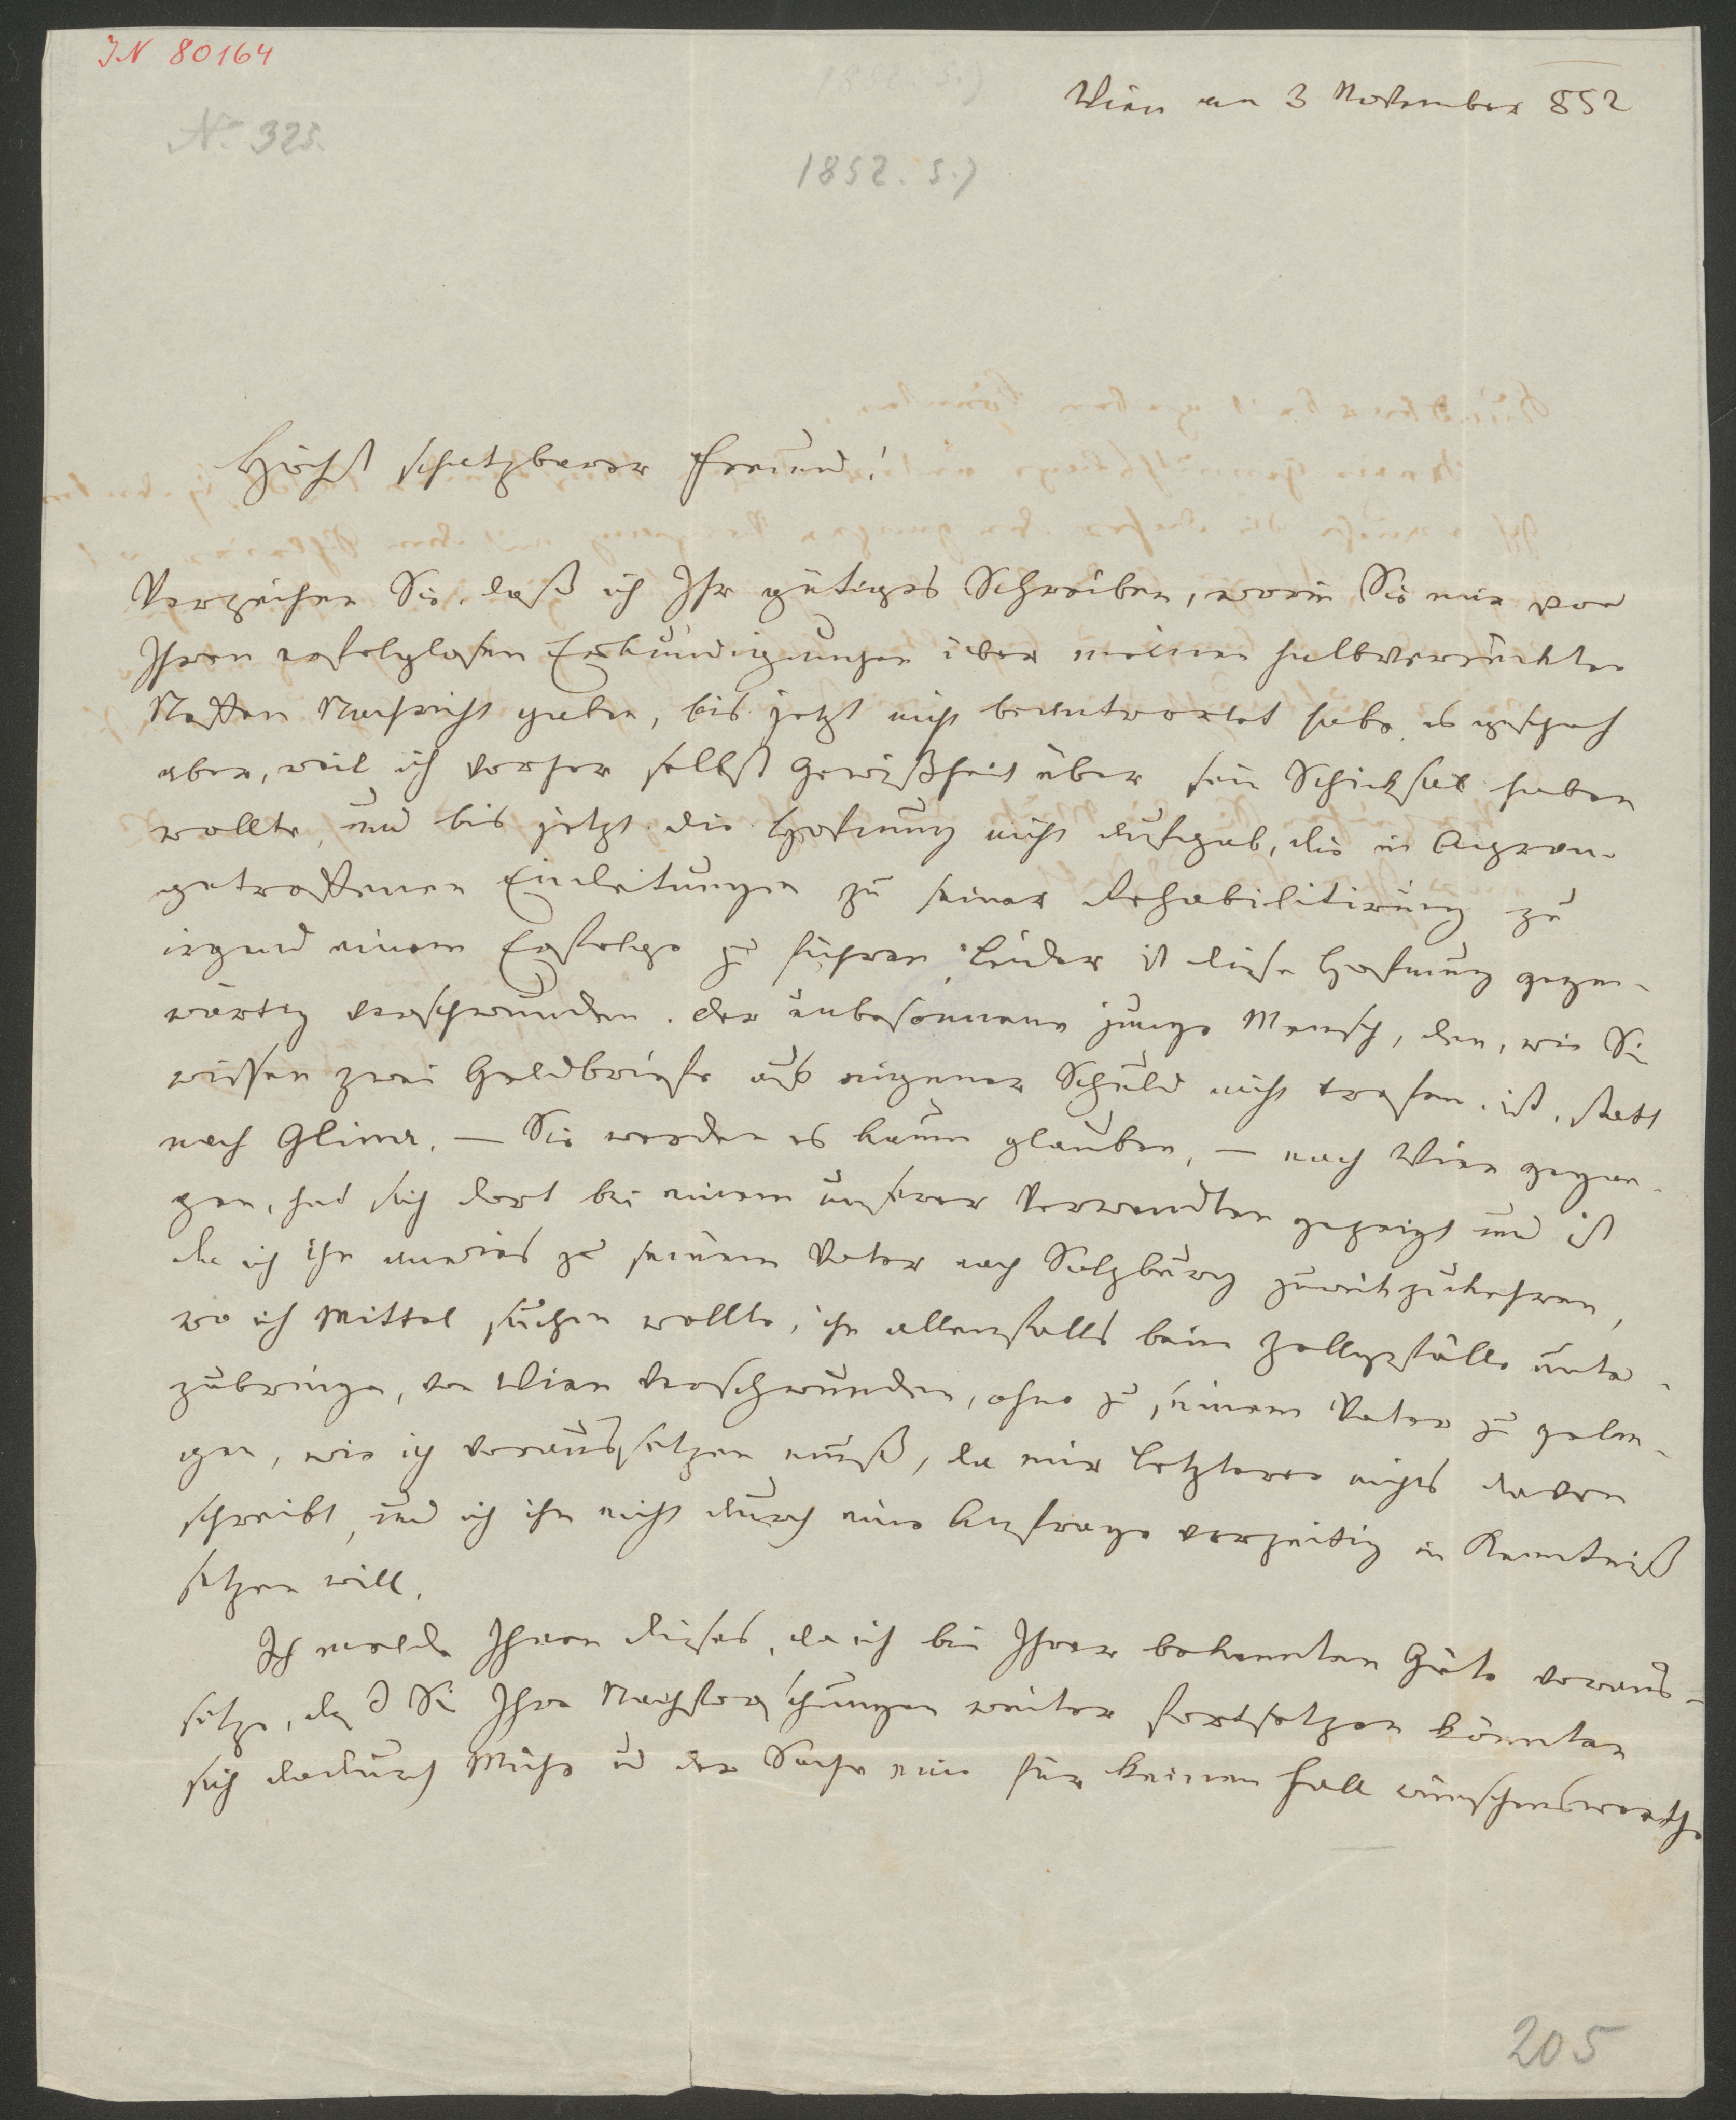 IN 80164
Wien am 3 November 852
No 325.
1852. 5.)
Höchst schatzbarer Freund!
Verzeihen Sie, daß ich Ihr gütiges Schreiben, worin Sie mir von
Ihren erfolglosen Erkundigungen über meinen halbverrückten
Neffen Nachricht gaben, bis jetzt nicht beantwortet habe, es geschah
aber, weil ich vorher selbst Gewißheit über sein Schicksal haben
wollte, und bis jetzt die Hofnung nicht aufgab, die in Agram
getroffenen Einleitungen zu seiner Rehabilitirung zu
irgend einem Erfolge zu führen. Leider ist diese Hofnung gegen-
wärtig verschwunden. Der unbesonnene junge Mensch, den, wie Sie
wissen zwei Geldbriefe aus eigener Schuld nicht trafen, ist, statt
nach Glina, – Sie werden es kaum glauben, – nach Wien gegan-
gen, hat sich dort bei einem unserer Verwandten gezeigt und ist
da ich ihn anwies zu seinem Vater nach Salzburg zurückzukehren,
wo ich Mittel suchen wollte, ihn allenfalls beim Zollgefälle unter-
zubringen, von Wien verschwunden, ohne zu seinem Vater zu gelan-
gen, wie ich voraussetzen muß, da mir Letzterer nichts davon
schreibt, und ich ihn nicht durch eine Anfrage vorzeitig in Kenntniß
setzen will.
Ich melde Ihnen dieses, da ich bei Ihrer bekannten Güte voraus-
setze, daß Sie Ihre Nachforschungen weiter fortsetzen könnten
sich dadurch Mühe und der Sache eine für keinen Fall wünschenswerthe
205